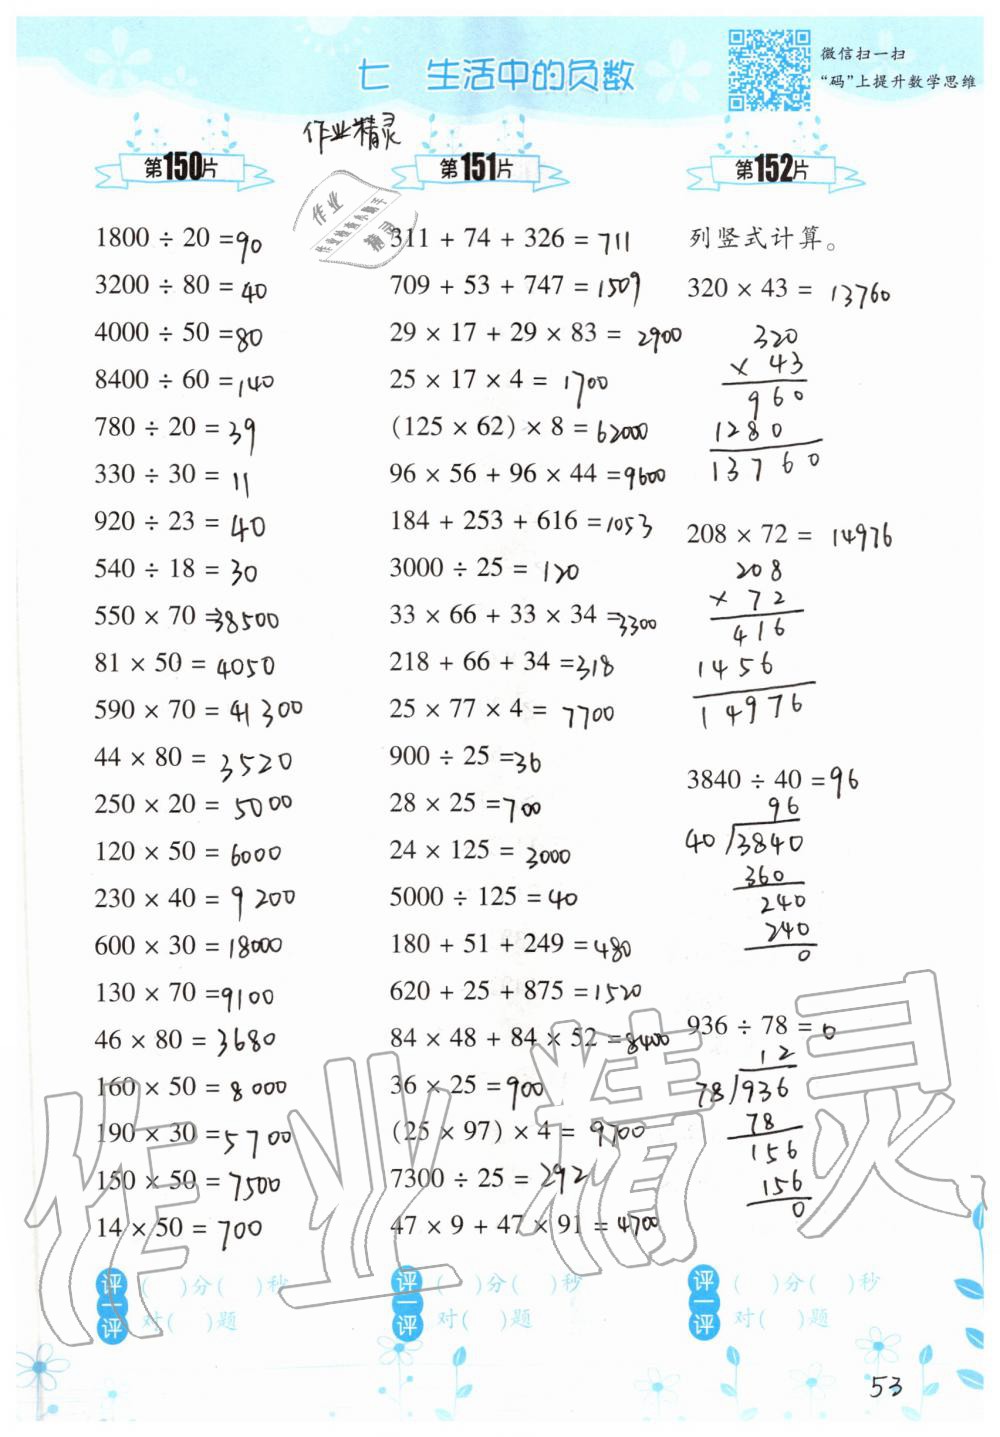 七 生活中的负数
微信扫一扫
“码”上提升数学思维
作业精灵
第150片
1800 ÷ 20 =90
3200 ÷ 80 =40
4000 ÷ 50 =80
8400 ÷ 60 =140
780 ÷ 20 =39
330 ÷ 30 =11
920 ÷ 23 =40
540 ÷ 18 =30
550 × 70 =38500
81 × 50 =4050
590 × 70 =41300
44 × 80 =3520
250 × 20 =5000
120 × 50 =6000
230 × 40 =9200
600 × 30 =18000
130 × 70 =9100
46 × 80 =3680
160 × 50 =8000
190 × 30 =5700
150 × 50 =7500
14 × 50 =700
评一评
( )分( )秒
对( )题
第151片
311 + 74 + 326 =711
709 + 53 + 747 =1509
29 × 17 + 29 × 83 =2900
25 × 17 × 4 =1700
(125 × 62) × 8 =62000
96 × 56 + 96 × 44 =9600
184 + 253 + 616 =1053
3000 ÷ 25 =120
33 × 66 + 33 × 34 =3300
218 + 66 + 34 =318
25 × 77 × 4 =7700
900 ÷ 25 =36
28 × 25 =700
24 × 125 =3000
5000 ÷ 125 =40
180 + 51 + 249 =480
620 + 25 + 875 =1520
84 × 48 + 84 × 52 =8400
36 × 25 =900
(25 × 97) × 4 =9700
7300 ÷ 25 =292
47 × 9 + 47 × 91 =4700
评一评
( )分( )秒
对( )题
第152片
列竖式计算。
320 × 43 = 13760
320
× 43
960
1280
13760
208 × 72 = 14976
208
× 72
416
1456
14976
3840 ÷ 40 =96
96
40 3840
360
240
240
0
936 ÷ 78 =0
12
78 936
78
156
156
0
评一评
( )分( )秒
对( )题
53
作业
作业检查小助手
精灵
作业精灵